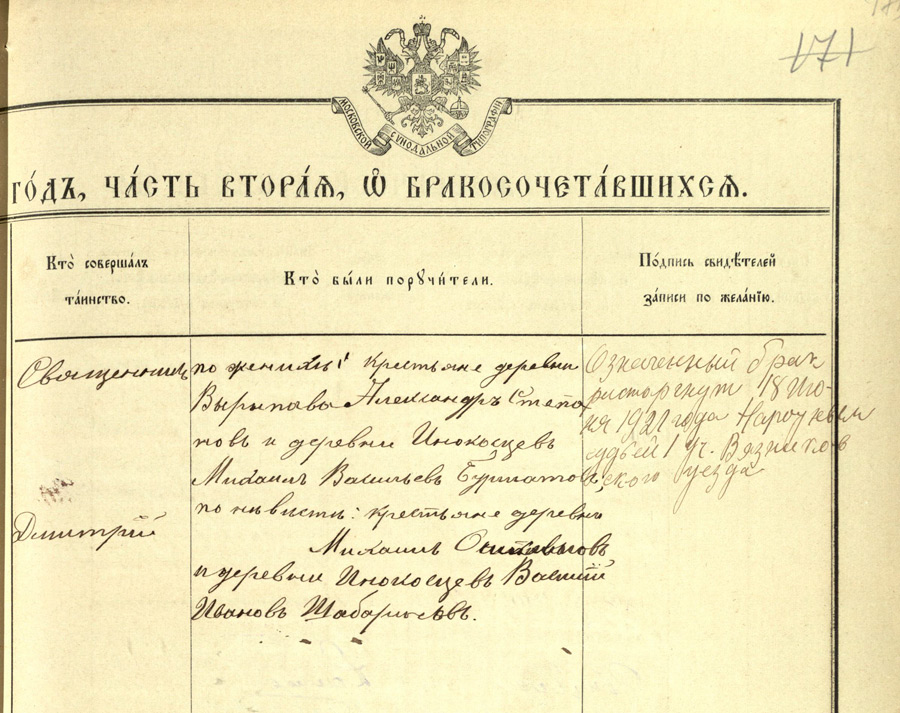 171
МОСКОВСКОЙ СУНОДАЛЬНОЙ ТИПОГРАФИИ
ГО́ДЪ, ЧА́СТЬ ВТОРА́Я, Ѡ҆ БРАКОСОЧЕТА́ВШИХСЯ.
Кто̀ соверша́лъ
та́инство.
Кто̀ бы́ли поручи́тели.
По́дпись свидѣ́телей
за́писи по жела́нїю.
Священникъ
Дмитрій
по женихѣ: крестьяне деревни
Вырыпава Александръ Степа
новъ и деревни Инокосцевъ
Михаилъ Васильевъ
по невѣсты: крестьяне деревни
Михаилъ
и деревни Инокосцевъ Василій
Ивановъ
Означенный брак
расторгнут 18 Ию-
ня 1921 года Народным
судьей 1 уч. Вязников
ского уезда